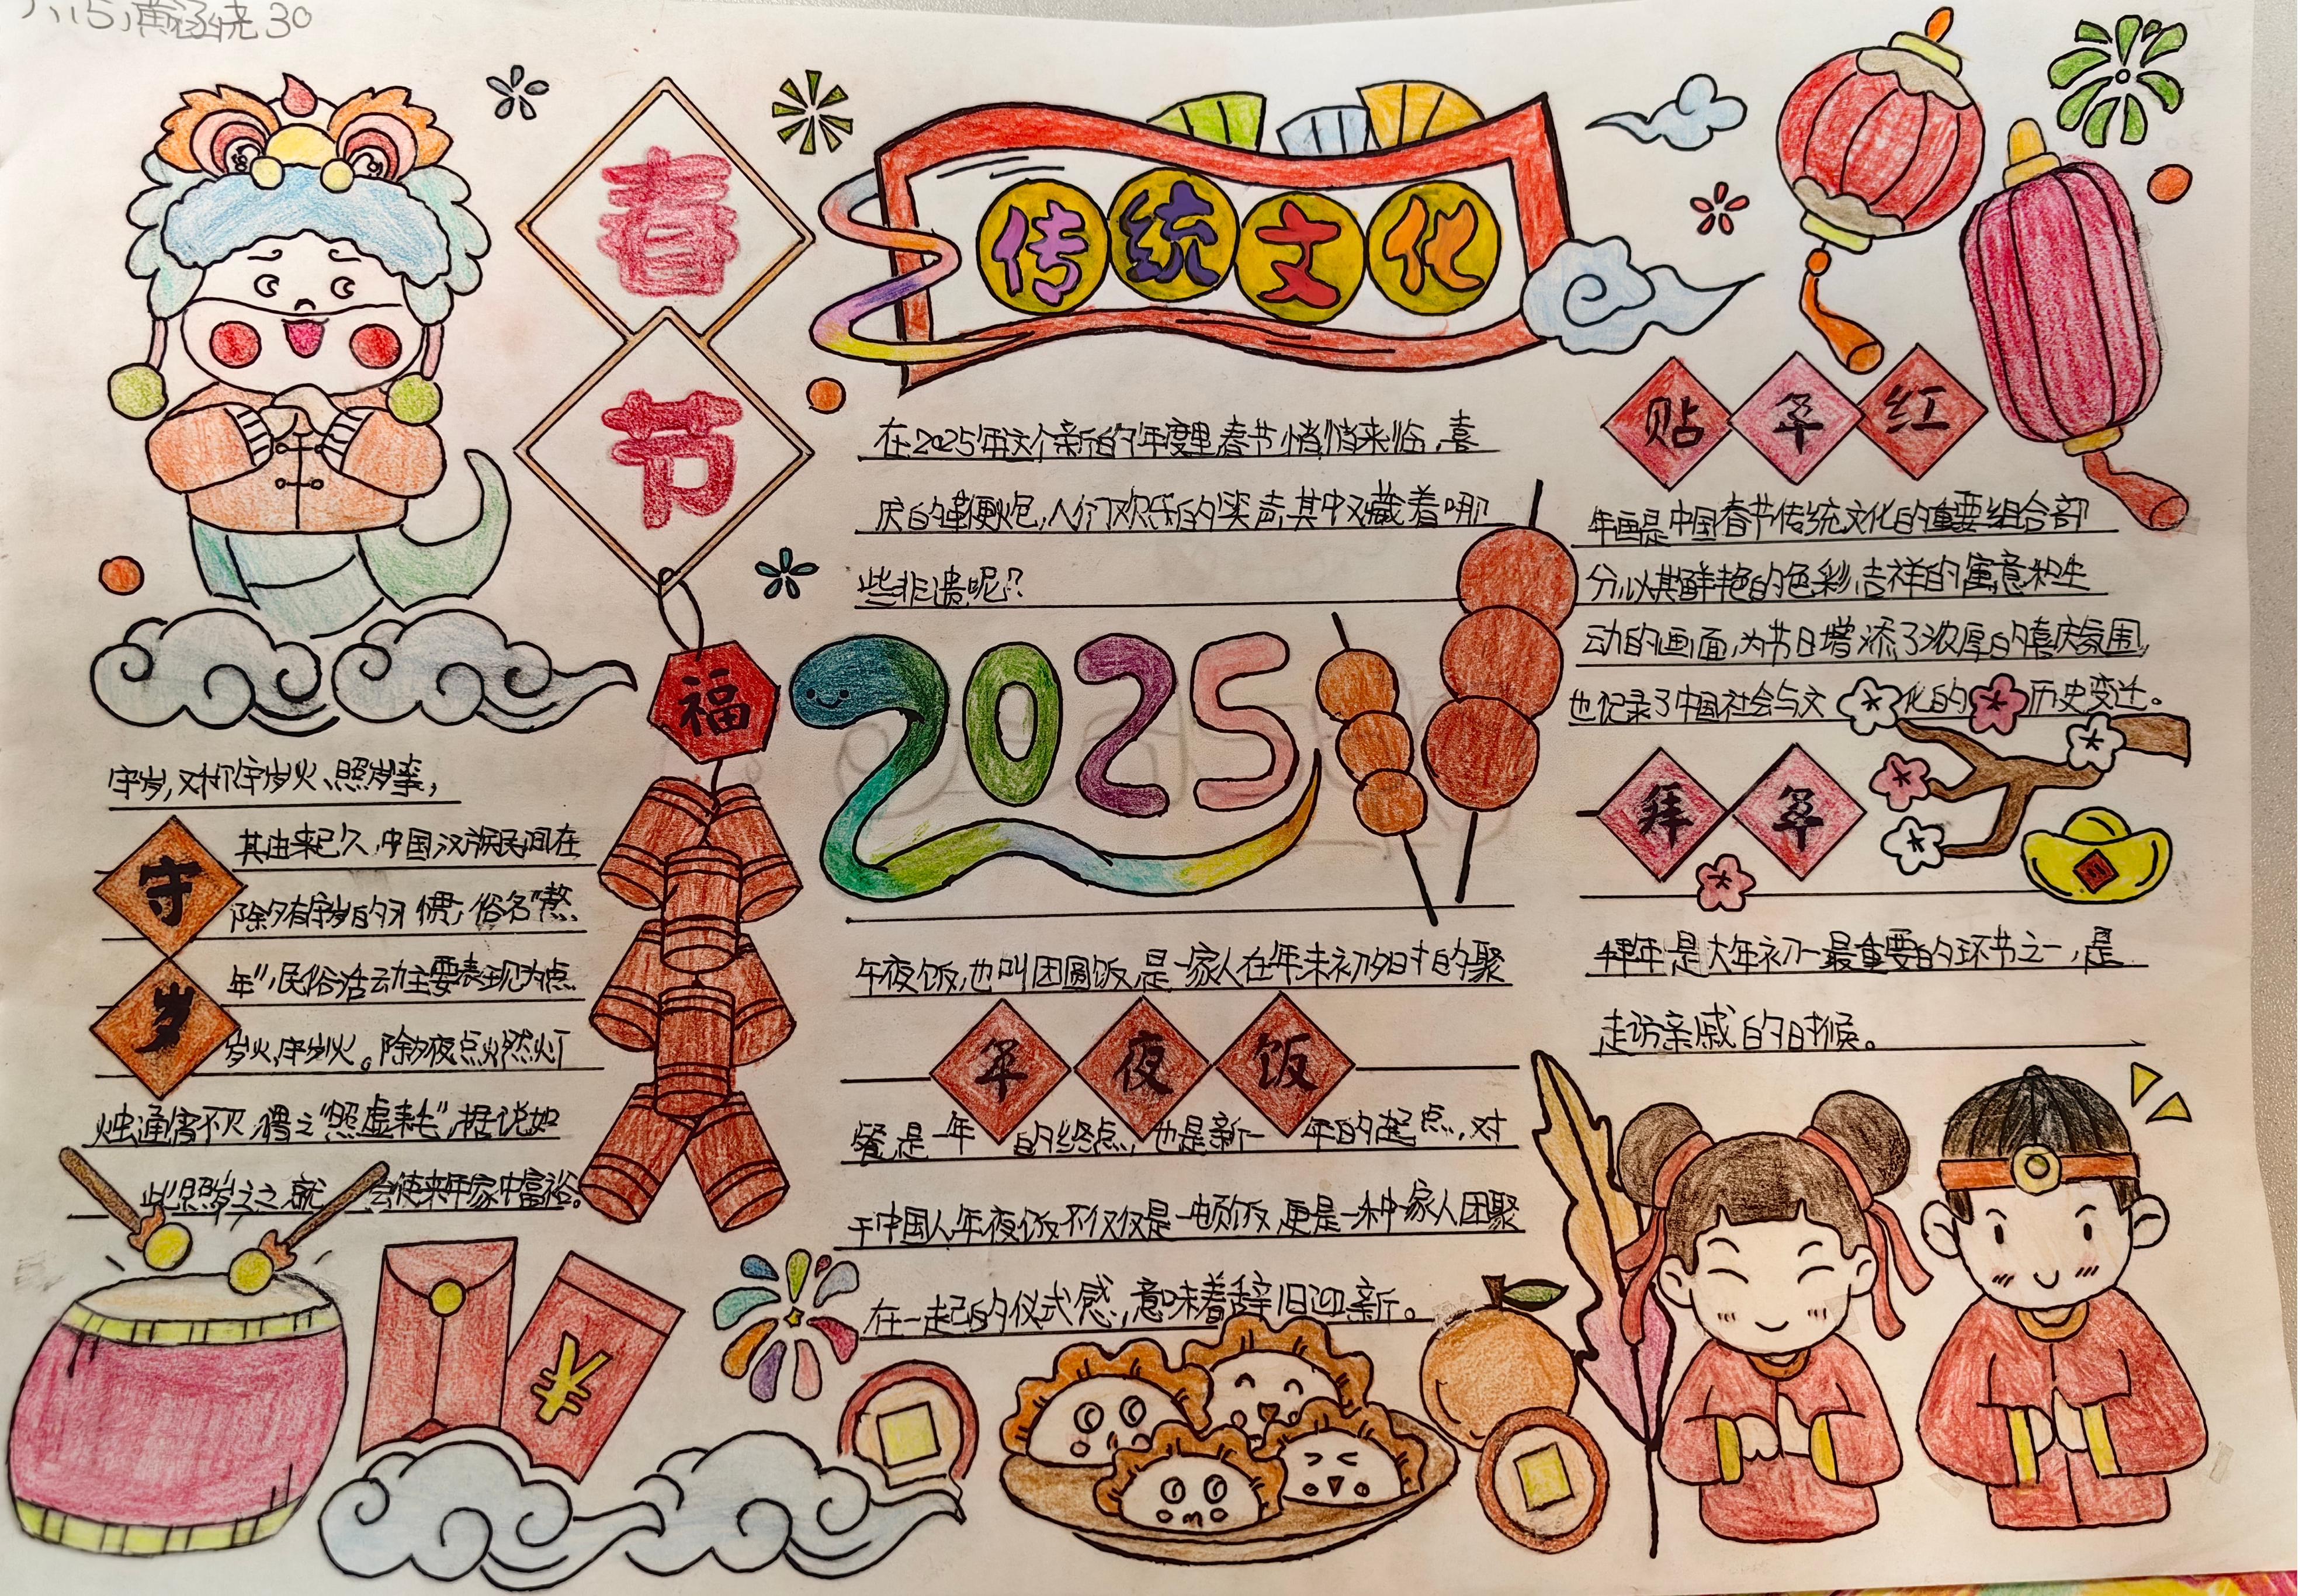 春节
传统文化
在2025年这个新的年度里春节悄悄来临,喜
庆的鞭炮,人们欢乐的笑声,其中又藏着哪
些非遗呢?
2025
福
守岁
守岁,又称守岁火、照岁
其由来已久,中国汉族民间在
除夕有守岁的习惯,俗名"熬
年",民俗活动主要表现为点
岁火,守岁火。除夕夜点燃灯
烛通宵不灭,谓之"照虚耗",据说如
此照岁之之就会使来年家中富裕。
年夜饭,也叫团圆饭,是一家人在年末初夕时的聚
年夜饭
餐,是一年的终点,也是新一年的起点,对
于中国人,年夜饭不仅仅是一顿饭,更是一种家人团聚
在一起的仪式感,意味着辞旧迎新。
贴年红
年画是中国春节传统文化的重要组合部
分,以其鲜艳的色彩,吉祥的寓意和生
动的画面,为节日增添了浓厚的喜庆氛围,
也记录了中国社会与文化的历史变迁。
拜年
拜年是大年初一最重要的环节之一,是
走访亲戚的时候。
¥